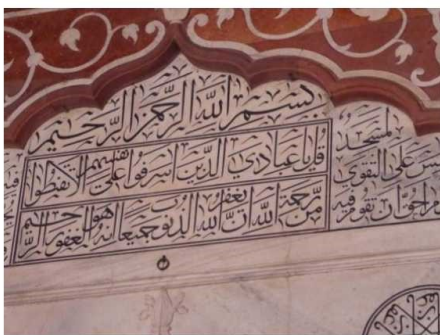 بسم الله الرحمن الرحيم
قل يا عبادي الذين اسرفوا على انفسهم لا تقنطوا
من رحمة الله ان الله يغفر الذنوب جميعا انه هو الغفور الرحيم
لمسجد
سس على التقوى
م احق ان تقوم فيه